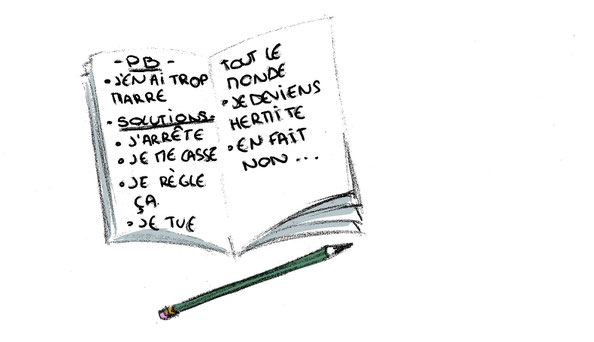 - PB -
• J'EN AI TROP
MARRE
• SOLUTIONS.
• J'ARRÊTE
• JE ME CASSE
• JE RÈGLE
ÇA.
• JE TUE
TOUT LE
MONDE
• JE DEVIENS
HERMITE
• EN FAIT
NON...